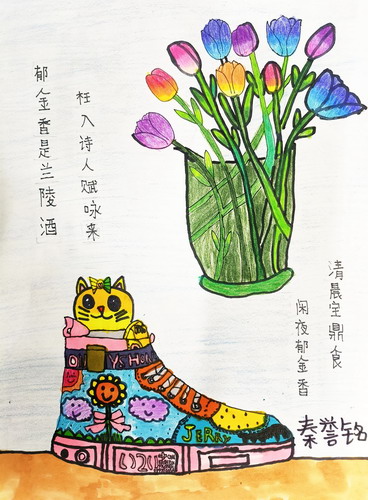 郁金香是兰陵酒
枉入诗人赋咏来
清晨宝鼎食
闲夜郁金香
秦誉铭
JERRY